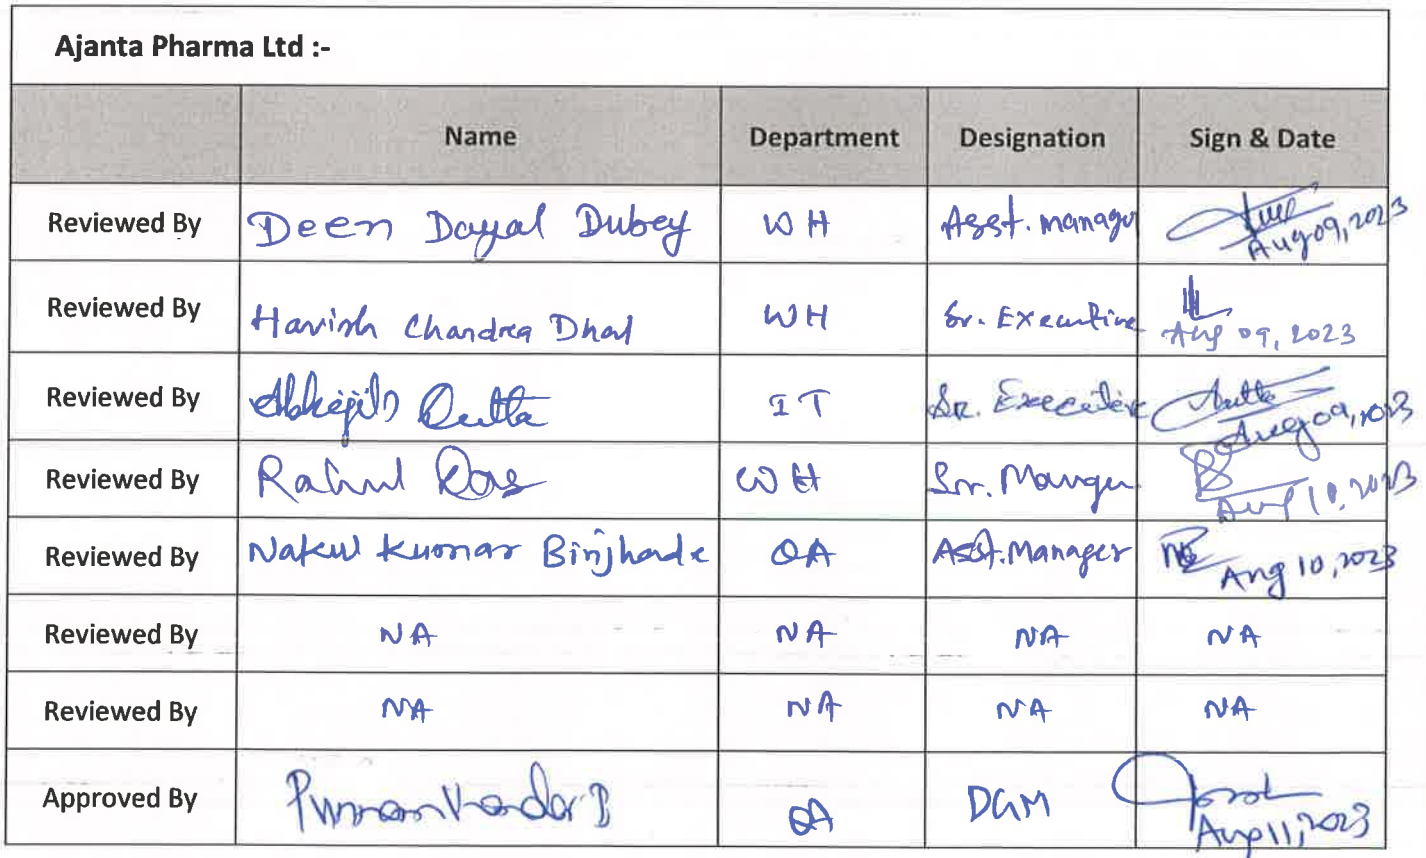 Ajanta Pharma Ltd :-
Name Department Designation Sign & Date
Reviewed By Deen Dayal Dubey WH Asst. manager Aug 09, 2023
Reviewed By Chandra WH Sr. Executive Aug 09, 2023
Reviewed By Abhijit Dutta IT Sr. Executive Aug 09, 2023
Reviewed By Rahul Das WH Sr. Manager Aug 10, 2023
Reviewed By Nakul Kumar QA Asst. Manager Aug 10, 2023
Reviewed By NA NA NA NA
Reviewed By NA NA NA NA
Approved By QA DGM Aug 11, 2023